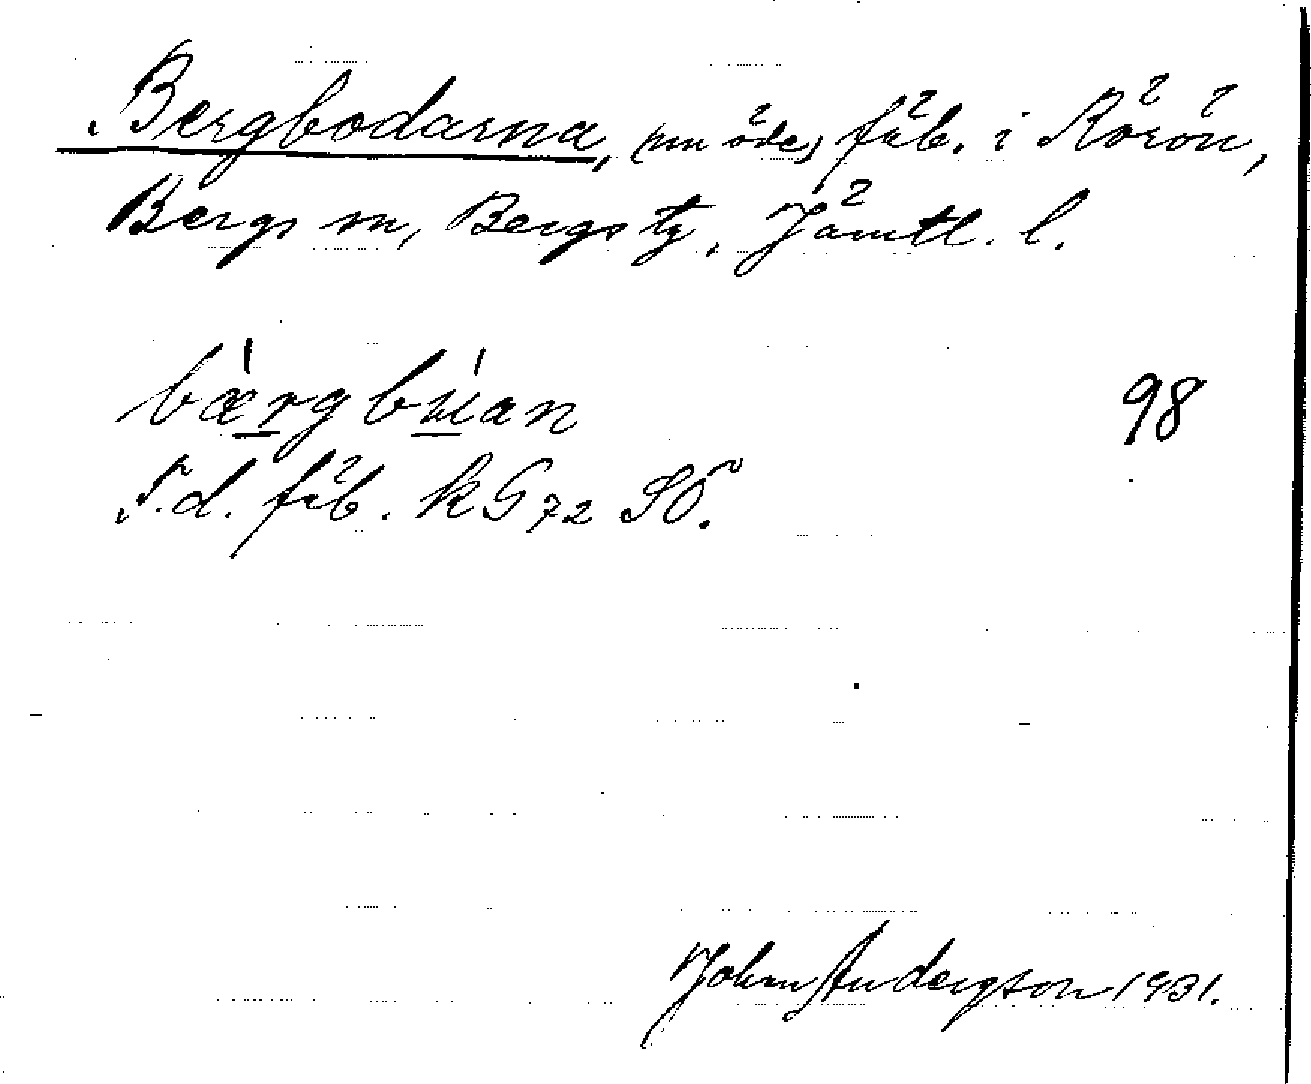 Bergbodarna, (nu öde) fäb. i Rörön,
Bergs sn, Bergs tg, Jämtl. l.
bærgbuan
98
F.d. fäb. k G72 SÖ.
John Andersson 1931.